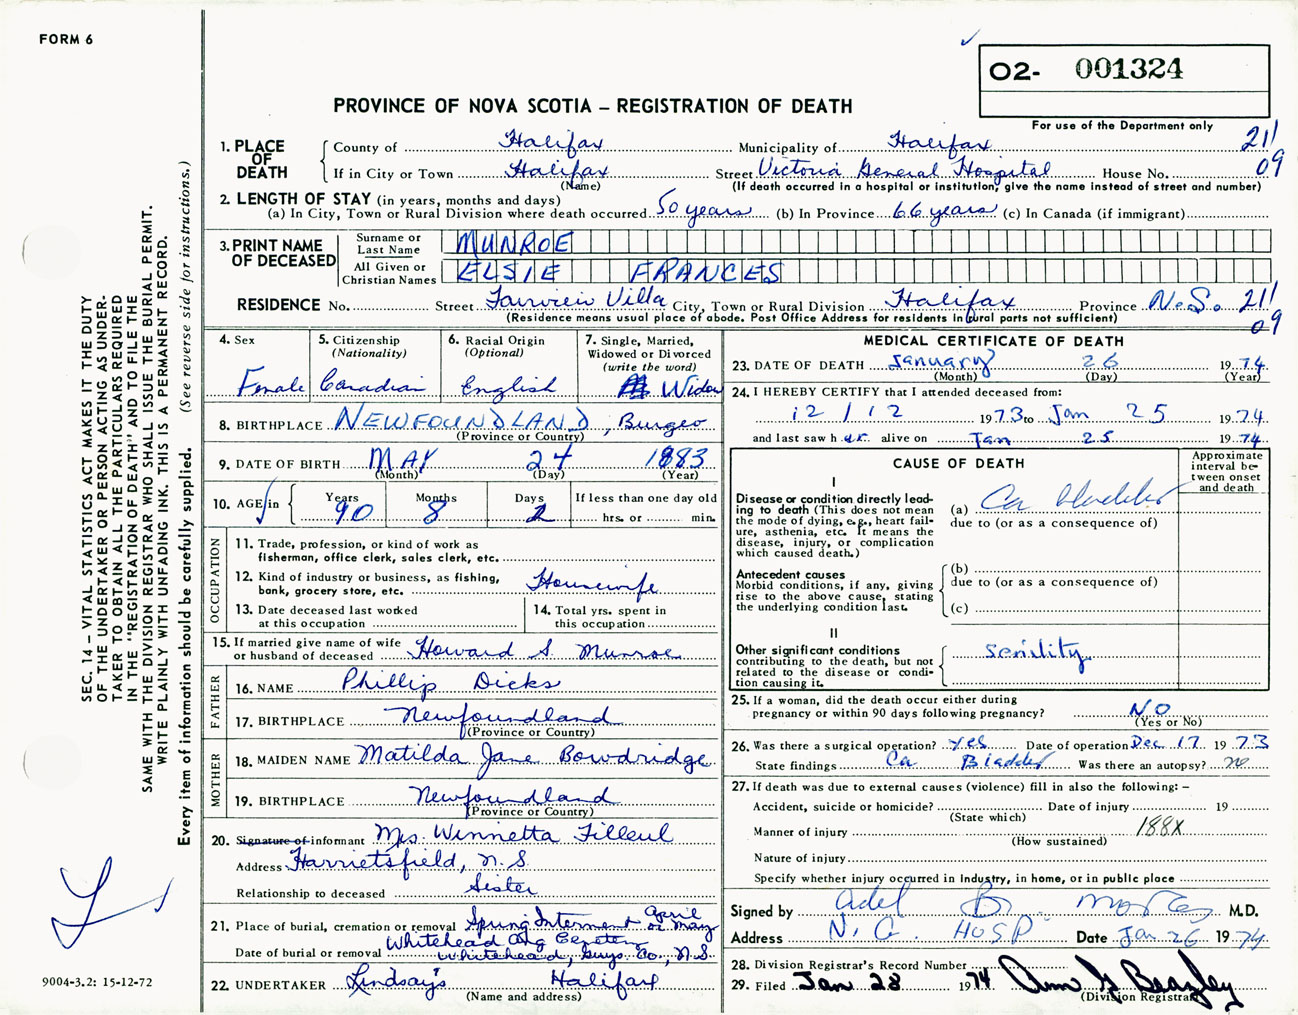 FORM 6
O2- 001324
PROVINCE OF NOVA SCOTIA – REGISTRATION OF DEATH
For use of the Department only
1. PLACE OF DEATH
County of Halifax Municipality of Halifax 211
If in City or Town Halifax Street Victoria General Hospital House No. 09
(Name) (If death occurred in a hospital or institution, give the name instead of street and number)
2. LENGTH OF STAY (in years, months and days)
(a) In City, Town or Rural Division where death occurred 50 years (b) In Province 66 years (c) In Canada (if immigrant)
3. PRINT NAME OF DECEASED
Surname or Last Name MUNROE
All Given or Christian Names ELSIE FRANCES
RESIDENCE No. Street Fairview Villa City, Town or Rural Division Halifax Province N.S. 211
(Residence means usual place of abode. Post Office Address for residents in rural parts not sufficient) 09
4. Sex Female
5. Citizenship (Nationality) Canadian
6. Racial Origin (Optional) English
7. Single, Married, Widowed or Divorced (write the word) Widow
8. BIRTHPLACE NEWFOUNDLAND, Burgeo
(Province or Country)
9. DATE OF BIRTH MAY 24 1883
(Month) (Day) (Year)
10. AGE in Years 90 Months 8 Days 2 If less than one day old hrs. or min.
OCCUPATION
11. Trade, profession, or kind of work as fisherman, office clerk, sales clerk, etc.
12. Kind of industry or business, as fishing, bank, grocery store, etc. Housewife
13. Date deceased last worked at this occupation
14. Total yrs. spent in this occupation
15. If married give name of wife or husband of deceased Howard S. Munroe
FATHER
16. NAME Phillip Dicks
17. BIRTHPLACE Newfoundland
(Province or Country)
MOTHER
18. MAIDEN NAME Matilda Jane Bowdridge
19. BIRTHPLACE Newfoundland
(Province or Country)
20. Signature of informant Mrs. Winnetta Filleul
Address Harrietsfield, N.S.
Relationship to deceased Sister
21. Place of burial, cremation or removal Spring Interment April or May
Whitehead Ang Cemetery
Date of burial or removal Whitehead, Guys. Co., N.S.
22. UNDERTAKER Lindsay's Halifax
(Name and address)
MEDICAL CERTIFICATE OF DEATH
23. DATE OF DEATH January 26 1974
(Month) (Day) (Year)
24. I HEREBY CERTIFY that I attended deceased from:
12/12 1973 to Jan 25 1974
and last saw her alive on Jan 25 1974
CAUSE OF DEATH
Approximate interval between onset and death
I
Disease or condition directly leading to death (This does not mean the mode of dying, e.g., heart failure, asthenia, etc. It means the disease, injury, or complication which caused death.)
(a) Ca bladder
due to (or as a consequence of)
Antecedent causes
Morbid conditions, if any, giving rise to the above cause, stating the underlying condition last.
(b)
due to (or as a consequence of)
(c)
II
Other significant conditions contributing to the death, but not related to the disease or condition causing it.
senility
25. If a woman, did the death occur either during pregnancy or within 90 days following pregnancy? NO
(Yes or No)
26. Was there a surgical operation? yes Date of operation Dec 17 1973
State findings Ca Bladder Was there an autopsy? no
27. If death was due to external causes (violence) fill in also the following: –
Accident, suicide or homicide? Date of injury 19
(State which)
Manner of injury 188X
(How sustained)
Nature of injury
Specify whether injury occurred in Industry, in home, or in public place
Signed by Adel B. M.D.
Address V.G. HOSP Date Jan 26 1974
28. Division Registrar's Record Number
29. Filed Jan 28 1974 Ann G Beazley
(Division Registrar)
SEC. 14 – VITAL STATISTICS ACT MAKES IT THE DUTY
OF THE UNDERTAKER OR PERSON ACTING AS UNDER-
TAKER TO OBTAIN ALL THE PARTICULARS REQUIRED
IN THE "REGISTRATION OF DEATH" AND TO FILE THE
SAME WITH THE DIVISION REGISTRAR WHO SHALL ISSUE THE BURIAL PERMIT.
WRITE PLAINLY WITH UNFADING INK. THIS IS A PERMANENT RECORD.
Every item of information should be carefully supplied. (See reverse side for instructions.)
9004-3.2: 15-12-72